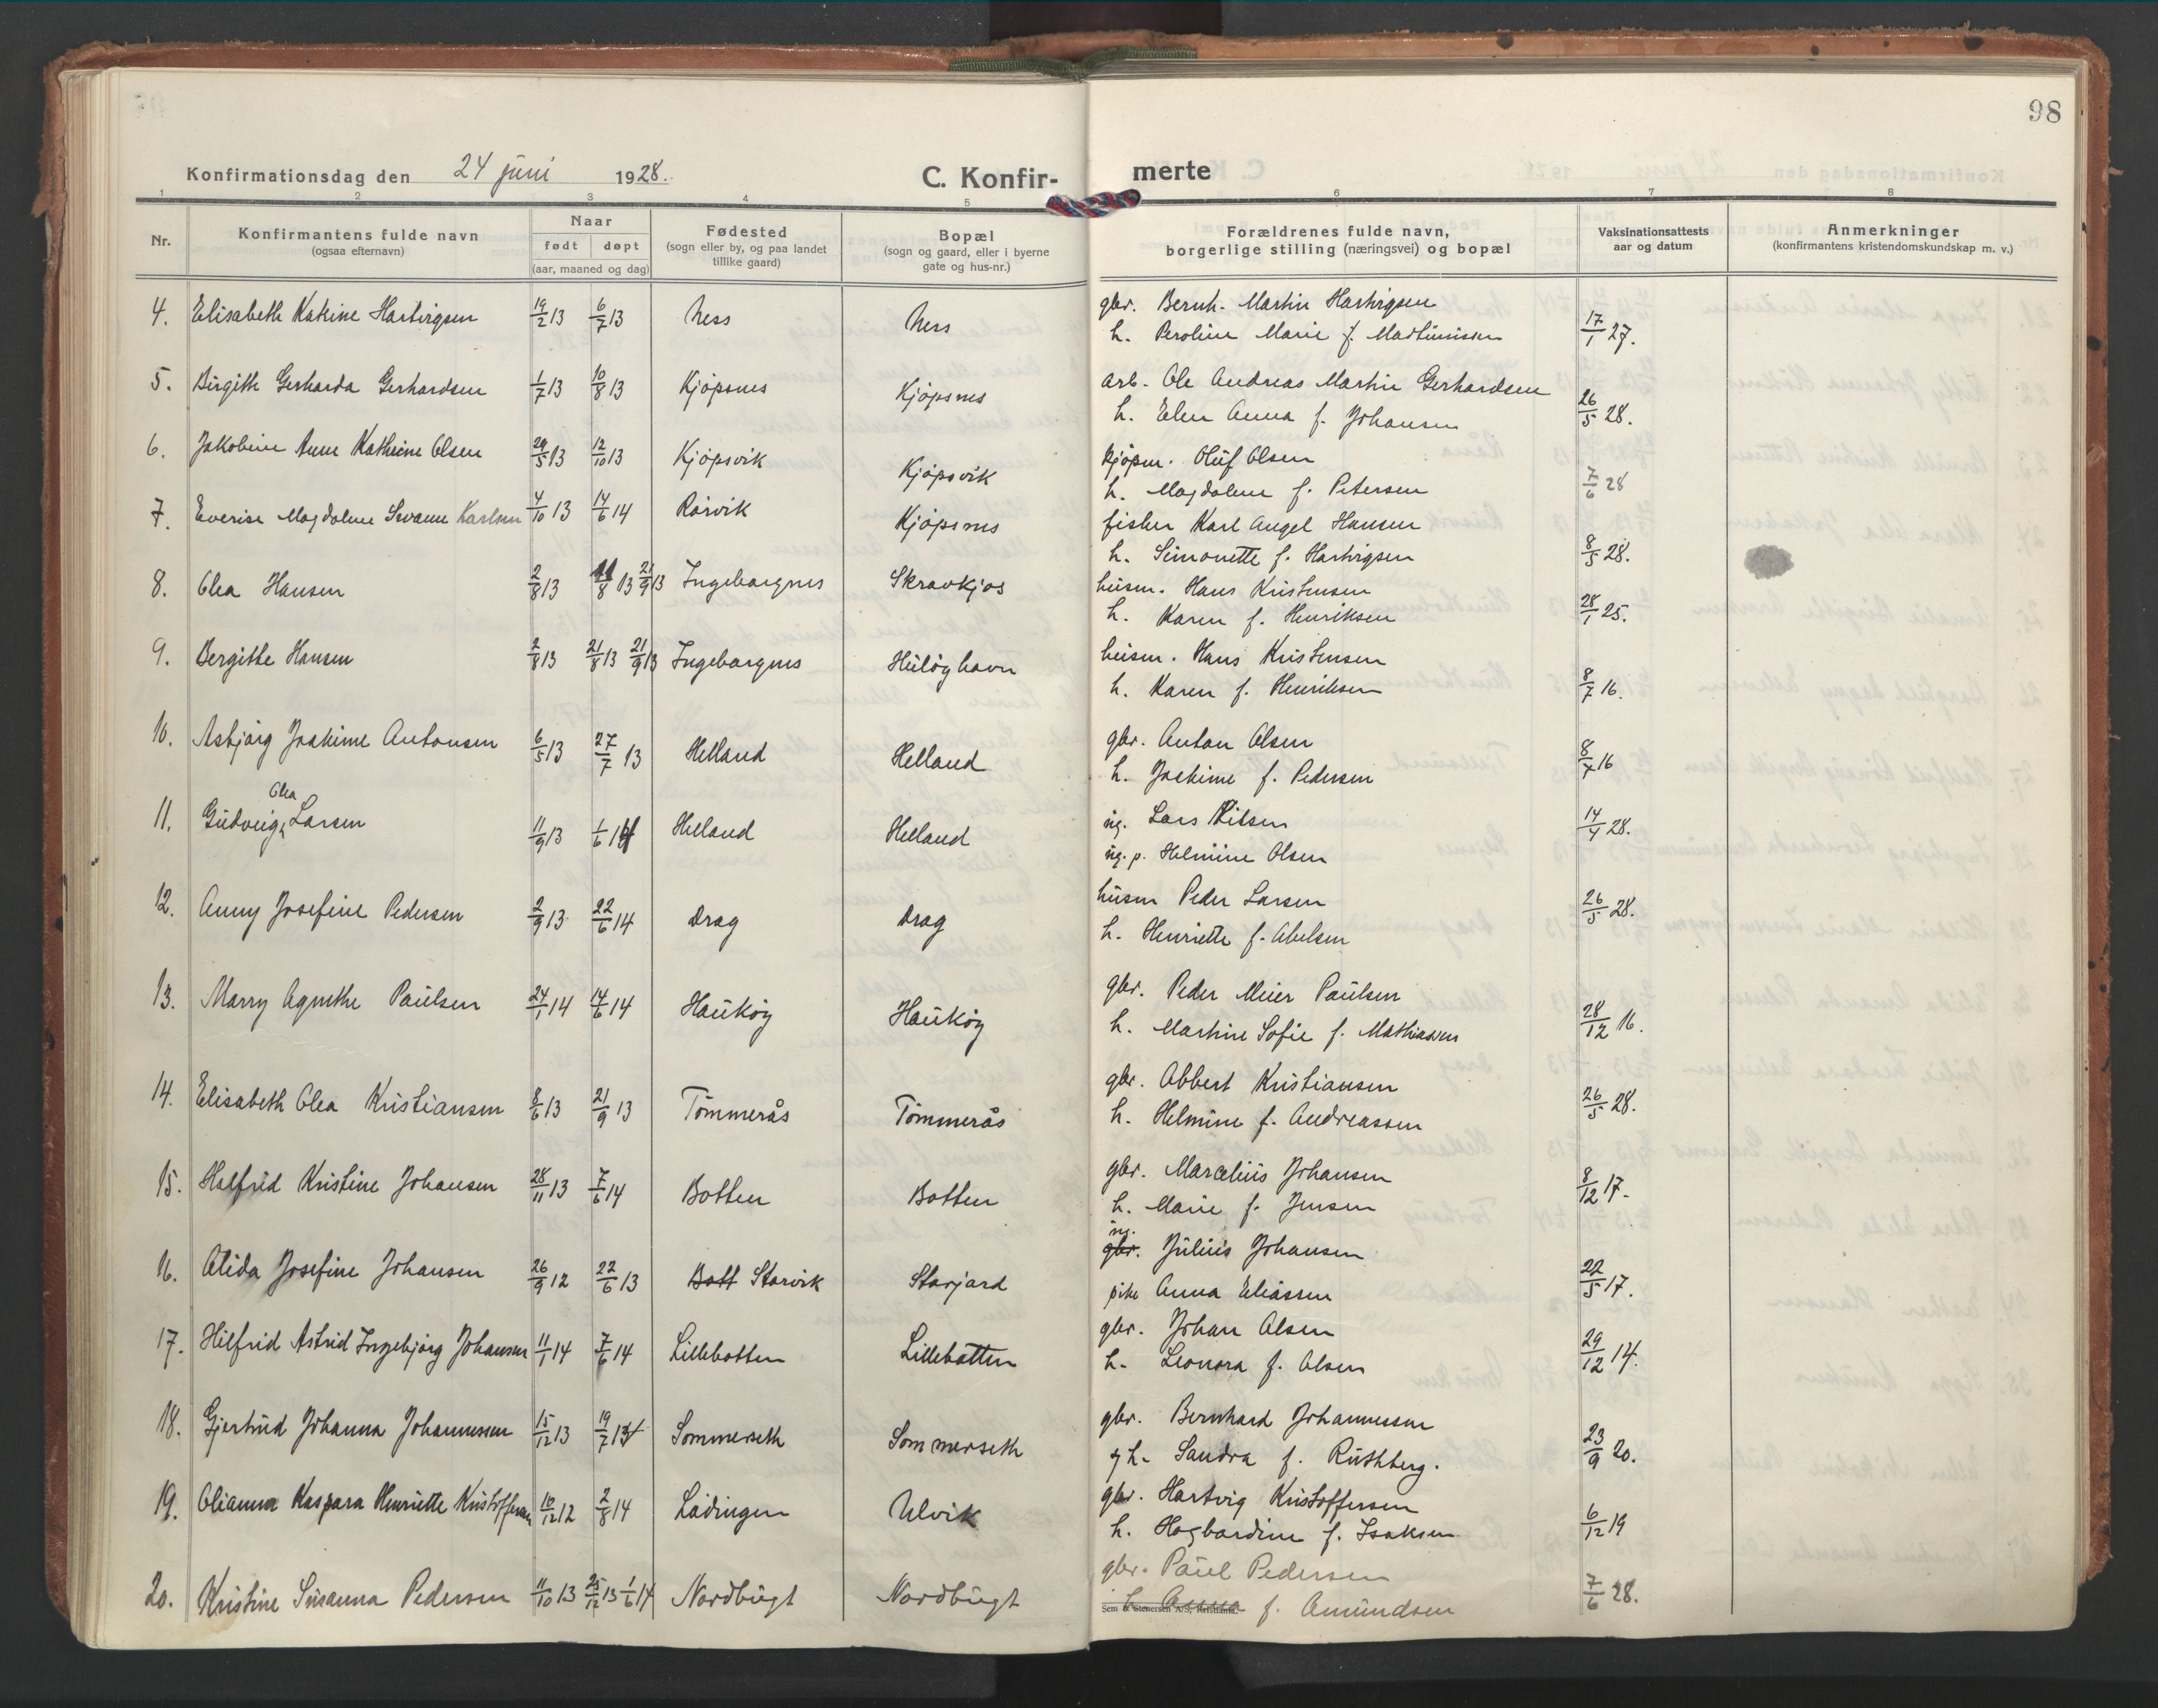 98
Konfirmationsdag den 24 juni 1928.
C. Konfir-
merte
1 2 3 4 5 6 7 8
Nr.
Konfirmantens fulde navn
(ogsaa efternavn)
Naar
født døpt
(aar, maaned og dag)
Fødested
(sogn eller by, og paa landet
tillike gaard)
Bopæl
(sogn og gaard, eller i byerne
gate og hus-nr.)
Forældrenes fulde navn,
borgerlige stilling (næringsvei) og bopæl
Vaksinationsattests
aar og datum
Anmerkninger
(konfirmantens kristendomskundskap m. v.)
4. Elisabeth Katrine Hartvigsen 19/2 13 6/7 13 Ness Ness gbr. Bernh. Martin Hartvigsen
h. Peroline Marie f. Martinussen 17/1 27.
5. Birgith Gerharda Gerhardsen 1/7 13 10/8 13 Kjöpsnes Kjöpsnes arb. Ole Andreas Martin Gerhardsen
h. Elen Anna f. Johansen 26/5 28.
6. Jakobine Anne Kathrine Olsen 29/5 13 12/10 13 Kjöpsvik Kjöpsvik kjöpm. Oluf Olsen
h. Magdalene f. Petersen 7/6 28
7. Everise Magdalene Svanne Karlsen 4/10 13 14/6 14 Rörvik Kjöpsnes fisker Karl Angel Hansen
h. Simonette f. Hartvigsen 8/5 28.
8. Olea Hansen 2/8 13 21/8 13 21/9 13 Ingeborgnes Skravkjos husm. Hans Kristensen
h. Karen f. Henriksen 28/1 25.
9. Bergitte Hansen 2/8 13 21/8 13 21/9 13 Ingeborgnes Hulöyhavn husm. Hans Kristensen
h. Karen f. Henriksen 8/7 16.
10. Asbjörg Joakime Antonsen 6/5 13 27/7 13 Helland Helland gbr. Anton Olsen
h. Joakime f. Pedersen 8/7 16
11. Gudveig Olea Larsen 11/9 13 1/6 14 Helland Helland ug. Lars Nilsen
ug. p. Helmine Olsen 14/4 28.
12. Anny Josefine Pedersen 2/9 13 22/6 14 Drag Drag husm Peder Larsen
h. Henriette f. Abelsen 26/5 28.
13. Marry Agnethe Paulsen 24/1 14 14/6 14 Hauköy Hauköy gbr. Peder Meier Paulsen
h. Martine Sofie f. Mathiassen 28/12 16.
14. Elisabeth Olea Kristiansen 8/6 13 21/9 13 Tömmerås Tömmerås gbr. Abbert Kristiansen
h. Helmine f. Andreassen 26/5 28.
15. Halfrid Kristine Johansen 28/11 13 7/6 14 Botten Botten gbr. Marcelius Johansen
h. Marie f. Jensen 8/12 17.
16. Alida Josefine Johansen 26/9 12 22/6 13 Bott Storvik Storjord gbr. ug. Julius Johansen
pike Anna Eliassen 22/5 17.
17. Hilfrid Astrid Ingebjörg Johansen 11/1 14 7/6 14 Lillebotten Lillebotten gbr. Johan Olsen
h. Leonora f. Olsen 29/12 14.
18. Gjertrud Johanna Johannessen 15/12 13 19/7 14 Sommerseth Sommerseth gbr. Bernhard Johannessen
og h. Sandra f. Ruthberg. 23/9 20.
19. Olianna Kaspara Henriette Kristoffersen 10/12 12 2/8 14 Lödingen Ulvik gbr. Hartvig Kristoffersen
h. Hagbardine f. Isaksen 6/12 19
20. Kristine Susanna Pedersen 11/10 13 25/12 13 1/6 14 Nordbugt Nordbugt gbr. Paul Pedersen
h. Anna f. Amundsen 7/6 28.
Sem & Stenersen A/S, Kristiania.